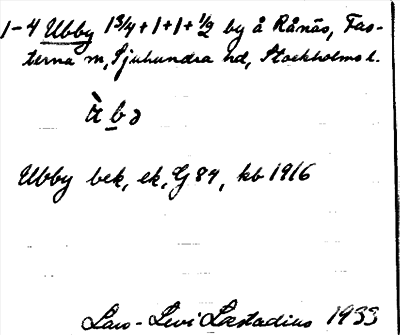 1-4 Ubby 1 3/4 + 1 + 1 + 1/2 by å Rånäs, Fas-
terna sn, Sjuhundra hd, Stockholms l.
Ubby bek, ek, G 84, kb 1916
Lars-Levi Læstadius 1933